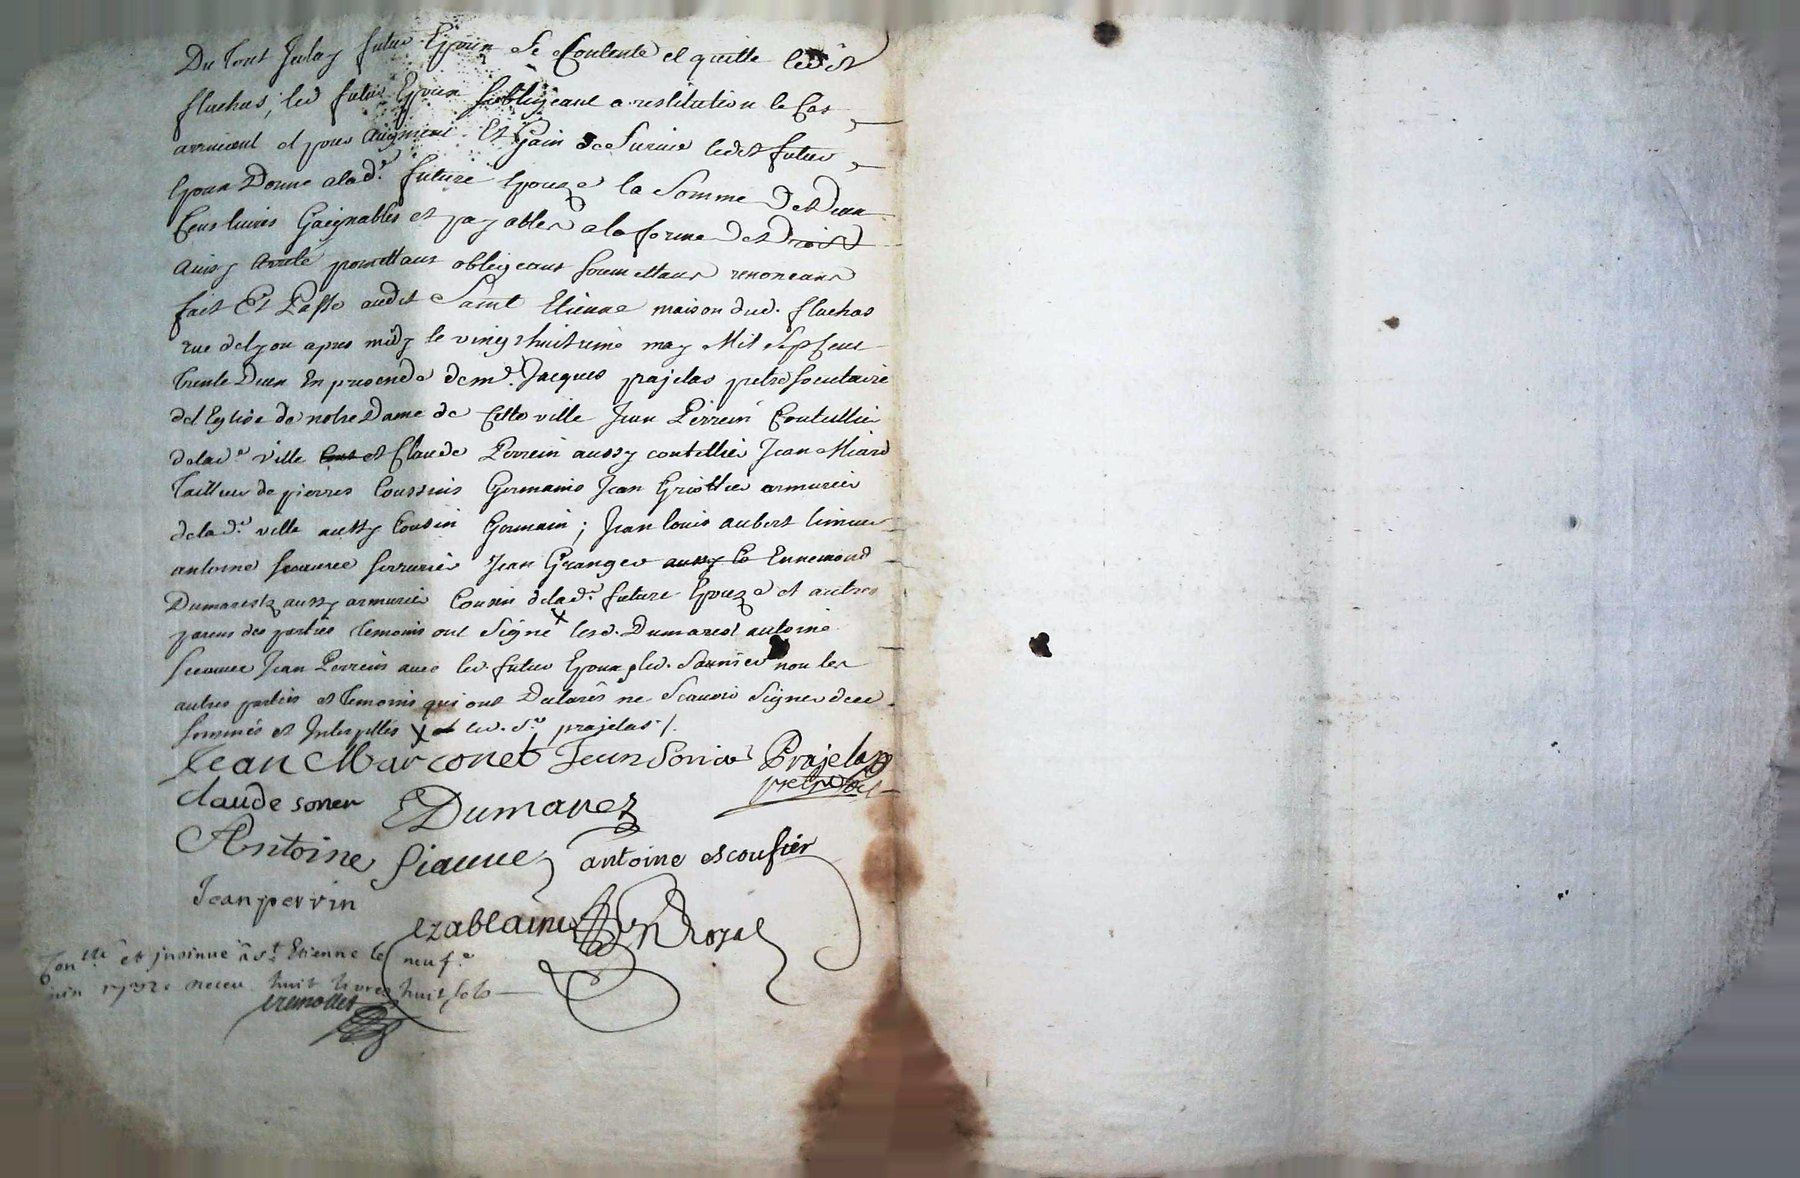 Du tout Iceluy futur Epoux se Contente et quitte led.t
flachas, led futur Epoux sobligeant a restitution le Cas
arrivant et pour augment Et Gain de Survie ledit futur
Epoux Donne alad.e future Epouze la Somme de deux
Cens livres Gaignables et payables a la forme du droit
Ainsy Arreté promettans obligeans soumettans renonceans
fait Et Passé audit Saint Etienne maison dud. flachas
rue de lyon apres midy le vingt huitieme may Mil Sept Cent
trente Deux En presence de m.e Jacques prajelas pretre Societaire
de l Eglise de notre Dame de Cette ville Jean Perrein Coutellier
de lad.e ville et Claude Perrein aussy coutellier Jean Miard
tailleur de pierres Coussins Germains Jean Griottier armurier
de lad.e ville aussy Cousin Germain ; Jean louis aubert limeur
antoine serrurier Jean Granger aussy Co Ennemond
Dumarestz aussy armurier Cousin de lad.e future Epouze et autres
parens des parties temoins ont Signé X lesd. Dumarest antoine
Jean Perrein avec led. futur Epoux, led. Saunier non les
autres parties et temoins qui ont Declarés ne Scavoir Signer de ce
sommés et Interpellés X et led. S.r prajelas /.
Jean Marconet Jean Sonier Prajelas
claude soner EDumarez pretre Soc
Antoine Siauve antoine escoufier
Jean perrin
ezablaine Royal
Con.lle et insinué a S.t Etienne le neuf.e
juin 1732 receu huit livres huit sols
tremollet